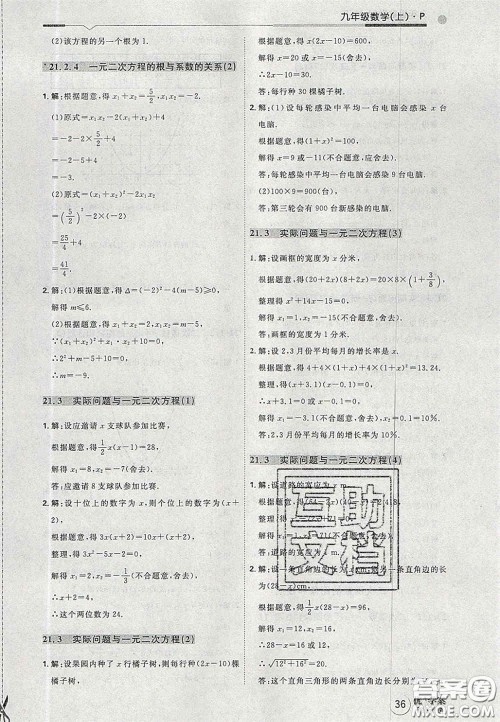 九年级数学(上)·P
(2)该方程的另一个根为1.
21.2.4 一元二次方程的根与系数的关系(2)
1.解:根据题意,得x₁+x₂=5/2,x₁x₂=-2.
(1)原式=x₁x₂-2(x₁+x₂)+4
=-2-2×5/2+4
=-3.
(2)原式=(x₁+x₂)²-2x₁x₂
=(5/2)²-2×(-2)
=25/4+4
=41/4.
2.解:根据题意,得Δ=(-2)²-4(m-5)≥0,
解得m≤6.
∵x₁+x₂=2,x₁x₂=m-5,
∴(x₁+x₂)²-2x₁x₂+m-5=0,
∴2²+m-5+10=0,
∴m=-9.
21.3 实际问题与一元二次方程(1)
1.解:设应邀请x支球队参加比赛,
解得x₁=8,x₂=-7(不合题意,舍去).
答:应邀请8支球队参加比赛.
2.解:设十位上的数字为x,则个位上的数字为(x+
2),
根据题意,得3x(x+2)=10x+(x+2),
整理,得3x²-5x-2=0,
解得x₁=2,x₂=-1/3(不合题意,舍去),
∴x+2=4,
∴这个两位数为24.
21.3 实际问题与一元二次方程(2)
1.解:设果园内种了x行橘子树,则每行种(2x-10)棵
橘子树.
根据题意,得x(2x-10)=600,
解得x=20或x=-15(舍去),
∴2x-10=30.
答:每行种30棵橘子树.
2.解:(1)设每轮感染中平均一台电脑会感染x台
电脑.
根据题意,得(1+x)²=100,
解得x=9或-11(不合题意,应舍去).
答:每轮感染中平均一台电脑会感染9台电脑.
(2)100×9=900(台).
答:第三轮会有900台新感染的电脑.
21.3 实际问题与一元二次方程(3)
1.解:设画框的宽度为x分米,
根据题意,得(20+2x)(8+2x)=20×8×(1+3/8),
整理得x²+14x-15=0,
解得x₁=1,x₂=-15(不合题意,舍去).
答:画框的宽度为1分米.
2.解:设2,3月份平均每月的增长率是x.
解得x₁=0.1,x₂=-3.1(不合题意,舍去),
∴x=0.1=10%.
答:2,3月份平均每月的增长率为10%.
21.3 实际问题与一元二次方程(4)
1.解:设道路的宽度为x m,
互助
文档
2.解:设一条直角边的长为x cm,则另一条直角边的长
为(8-x)cm.
根据题意,得1/2x(8-x)=6,
解得x₁=2,x₂=6.
答:这个直角三角形的两条直角边的长分别为
36
答案圈